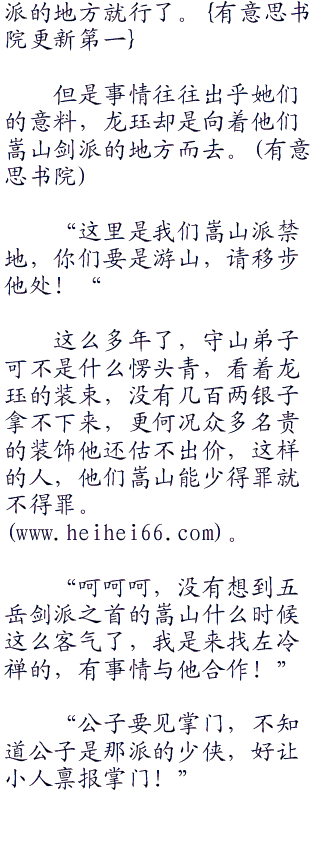 派的地方就行了。{有意思书
院更新第一}
但是事情往往出乎她们
的意料，龙珏却是向着他们
嵩山剑派的地方而去。(有意
思书院)
“这里是我们嵩山派禁
地，你们要是游山，请移步
他处！“
这么多年了，守山弟子
可不是什么愣头青，看着龙
珏的装束，没有几百两银子
拿不下来，更何况众多名贵
的装饰他还估不出价，这样
的人，他们嵩山能少得罪就
不得罪。
(www.heihei66.com)。
“呵呵呵，没有想到五
岳剑派之首的嵩山什么时候
这么客气了，我是来找左冷
禅的，有事情与他合作！”
“公子要见掌门，不知
道公子是那派的少侠，好让
小人禀报掌门！”